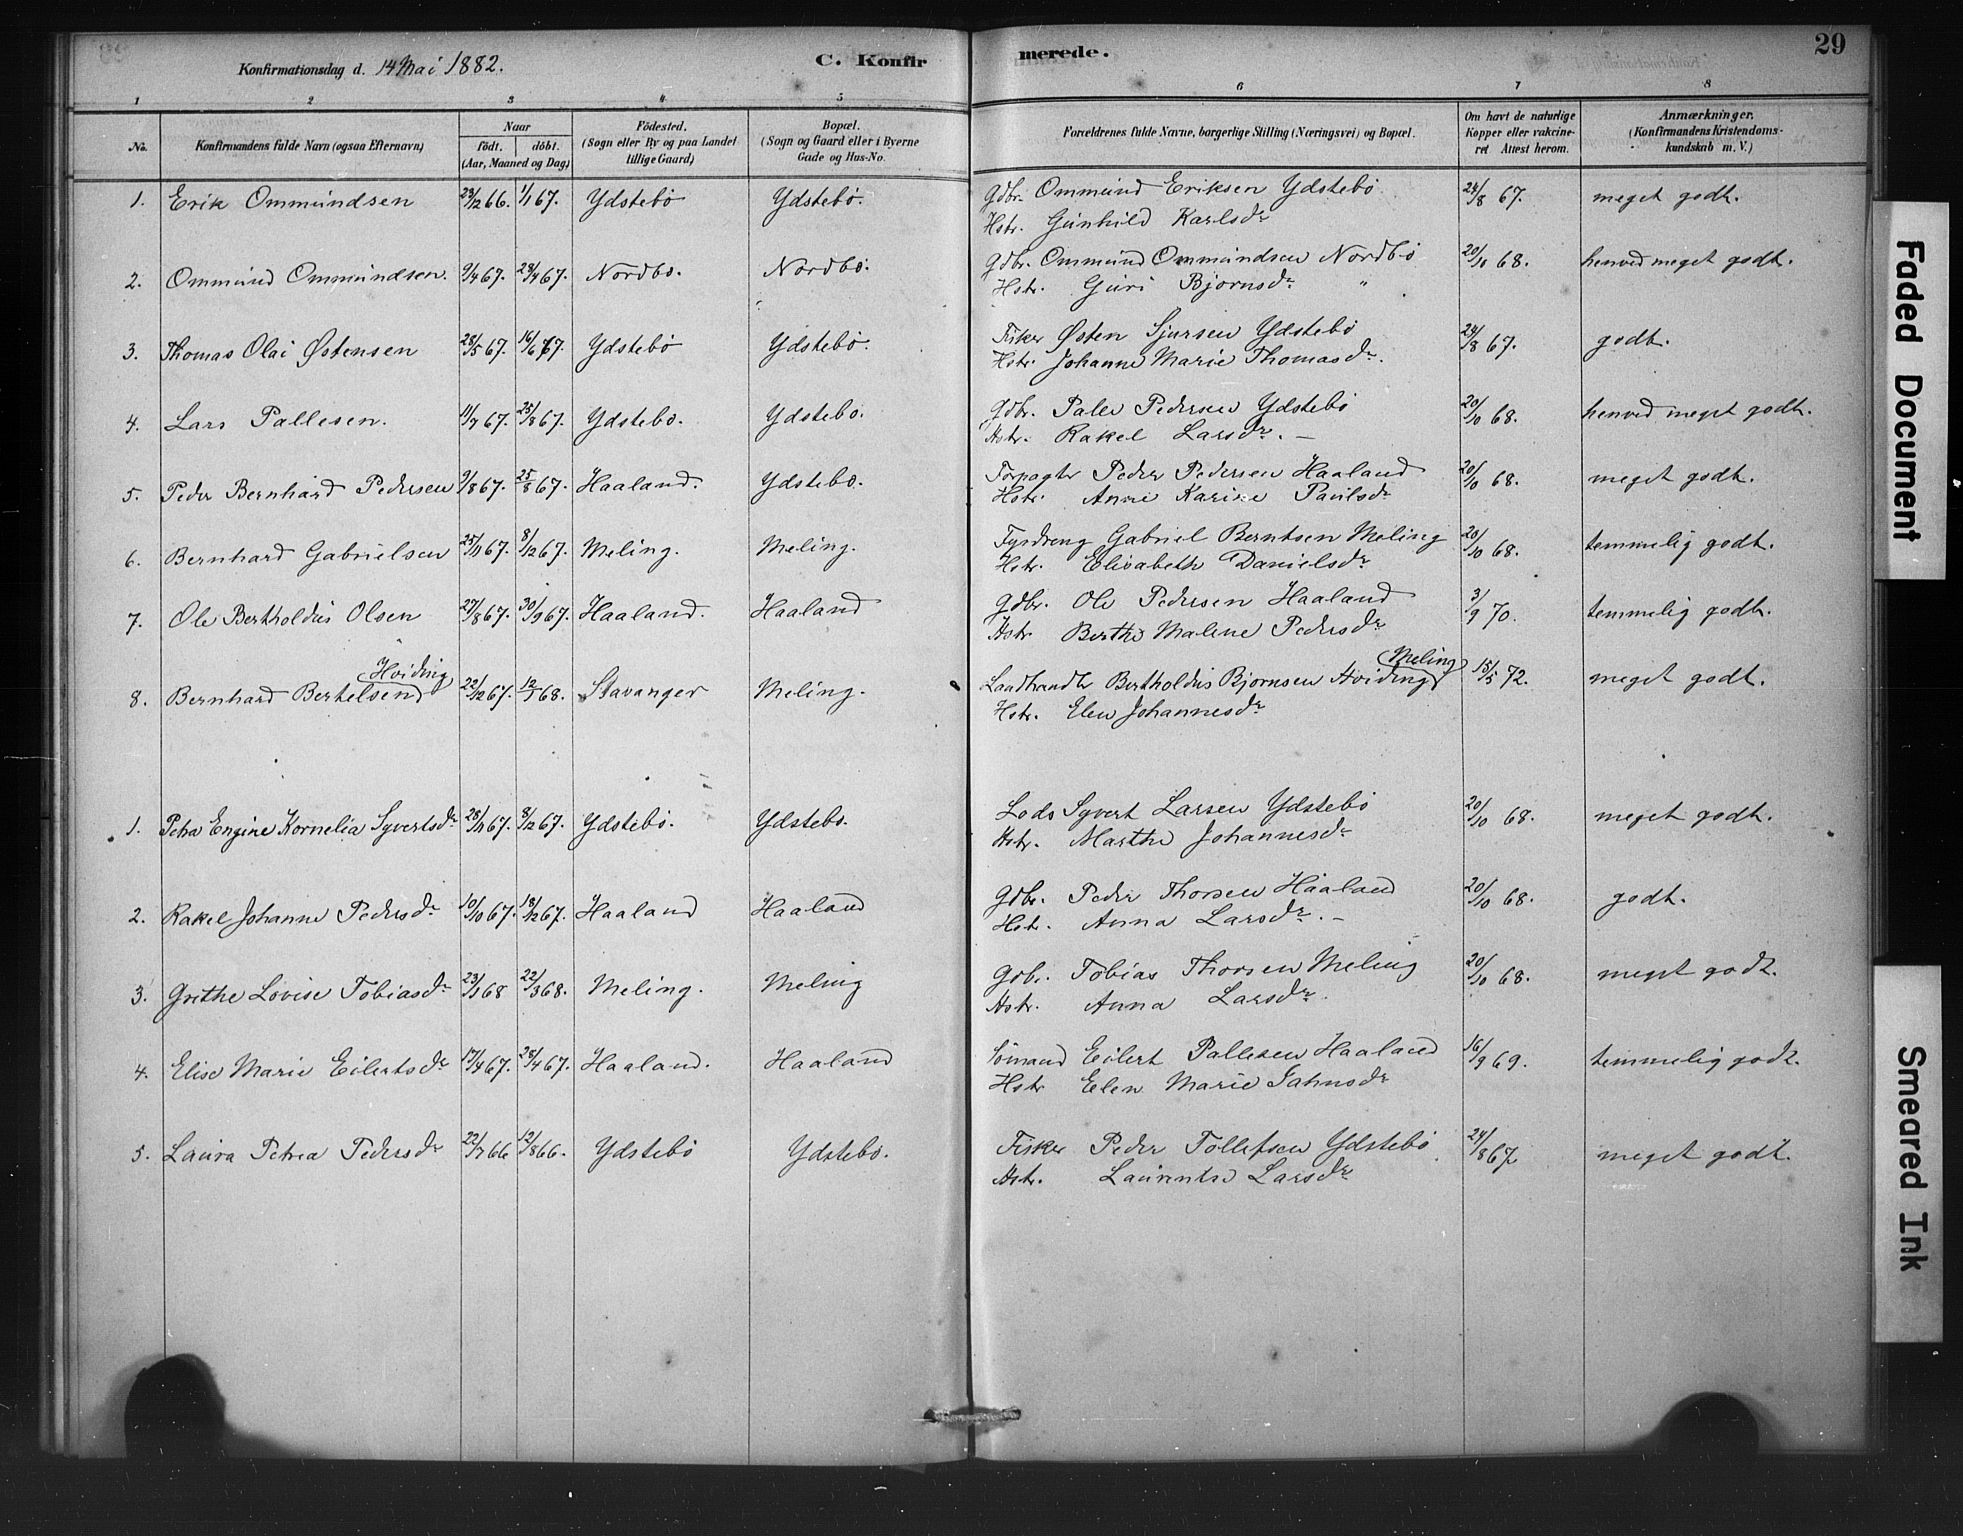 Konfirmationsdag d. 14 Mai 1882. C. Konfirmerede. 29
1 2 3 4 5 6 7 8
No. Konfirmandens fulde Navn (ogsaa Efternavn)
Naar
födt. döbt.
(Aar, Maaned og Dag)
Födested.
(Sogn eller By og paa Landet
tillige Gaard)
Bopæl.
(Sogn og Gaard eller i Byerne
Gade og Hus-No.
Forældrenes fulde Navne, borgerlige Stilling (Næringsvei) og Bopæl.
Om havt de naturlige
Kopper eller vakcine-
ret Attest herom.
Anmærkninger.
(Konfirmandens Kristendoms-
kundskab m. V.)
1. Erik Ommundsen 23/12 66. 1/1 67. Ydstebö Ydstebö. Gdbr. Ommund Eriksen Ydstebö 24/8 67. meget godt.
Hstr. Gunhild Karlsdr
2. Ommund Ommundsen. 9/4 67. 28/4 67. Nordbö. Nordbö. Gdbr. Ommund Ommundsen Nordbö 20/10 68. henved meget godt.
Hstr. Guri Bjornsdr "
3. Thomas Olai Østensen 28/5 67. 16/6 67. Ydstebö Ydstebö. Fisker Østen Sjursen Ydstebö 24/8 67. godt.
Hstr. Johanne Marie Thomasdr.
4. Lars Pallesen. 11/7 67. 25/8 67. Ydstebö. Ydstebö. Gdbr. Palle Pedersen Ydstebö 20/10 68. henved meget godt.
Hstr. Rakel Larsdr. –
5. Peder Bernhard Pedersen 9/8 67. 25/8 67. Haaland. Ydstebö. Forpagter Peder Pedersen Haaland 20/10 68. meget godt.
Hstr. Anne Karine Paulsdr
6. Bernhard Gabrielsen 25/11 67. 8/12 67. Meling. Meling. Fyrdreng Gabriel Berntsen Meling 20/10 68. temmelig godt.
Hstr. Elisabeth Danielsdr
7. Ole Bertholdus Olsen 27/8 67. 30/9 67. Haaland. Haaland Gdbr. Ole Pedersen Haaland 3/9 70. temmelig godt.
Hstr. Berthe Malene Pedersdr
Hviding Meling
8. Bernhard Bertelsen 22/12 67. 12/1 68. Stavanger Meling. Landhandler Bertholdus Bjornsen Hviding 15/5 72. meget godt.
Hstr. Elen Johannesdr
1. Petra Engine Kornelia Syvertsdr 28/11 67. 8/12 67. Ydstebö. Ydstebö. Lods Syvert Larsen Ydstebö 20/10 68. meget godt.
Hstr. Marthe Johannesdr
2. Rakel Johanne Pedersdr 10/10 67. 18/12 67. Haaland Haaland Gdbr. Peder Thorsen Haaland 20/10 68. godt.
Hstr. Anna Larsdr. –
3. Grethe Lovise Tobiasdr 23/1 68 22/3 68. Meling. Meling Gdbr. Tobias Thorsen Meling 20/10 68. meget godt.
Hstr. Anna Larsdr.
4. Elise Marie Eilertsdr 17/4 67. 28/4 67. Haaland. Haaland Sömand Eilert Pallesen Haaland 16/9 69. temmelig godt.
Hstr Elen Marie Jahnsdr
5. Laura Petrea Pedersdr 22/7 66 12/8 66. Ydstebö Ydstebö. Fisker Peder Tollefsen Ydstebö 24/8 67 meget godt.
Hstr. Laurentse Larsdr
Faded Document
Smeared Ink